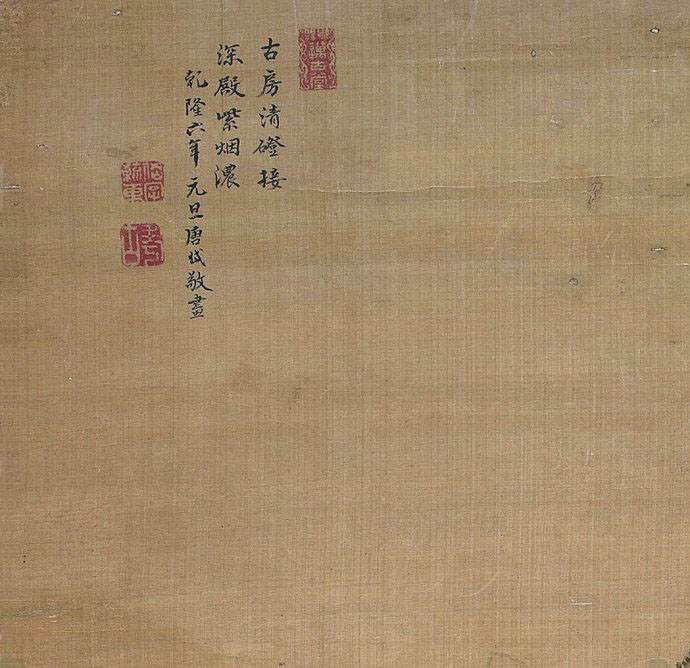 古房清磴接
深殿紫烟濃
乾隆六年元旦唐岱敬畫